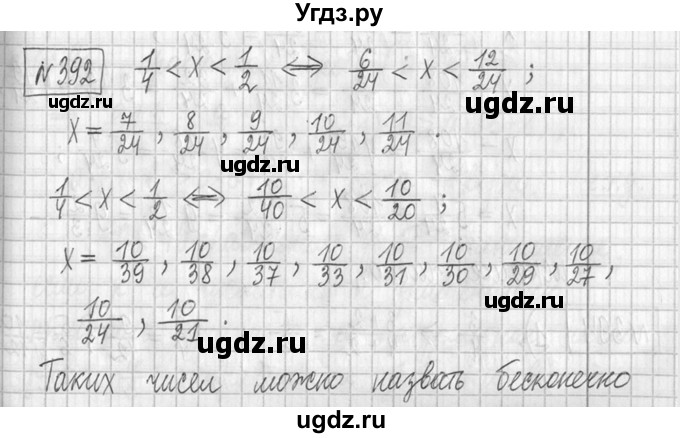 Угдз.ру
№392 1/4 < x < 1/2 ⟺ 6/24 < x < 12/24 ;
ugdz.ru ugdz.ru
x = 7/24 , 8/24 , 9/24 , 10/24 , 11/24 .
ugdz.ru
1/4 < x < 1/2 ⟺ 10/40 < x < 10/20 ;
ugdz.ru
x = 10/39 , 10/38 , 10/37 , 10/33 , 10/31 , 10/30 , 10/29 , 10/27 ,
ugdz.ru
10/24 , 10/21 .
ugdz.ru
Таких чисел можно назвать бесконечно
ugdz.ru